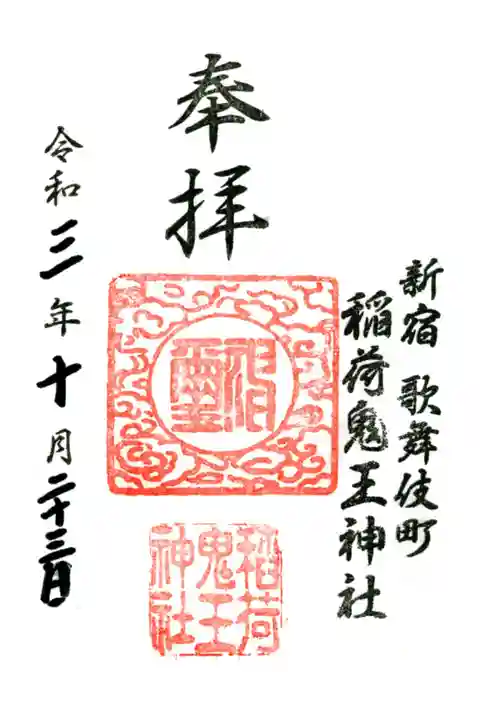 新宿 歌舞伎町
稲荷鬼王神社
奉拝
稲荷
鬼王
神社
令和三年十月二十三日